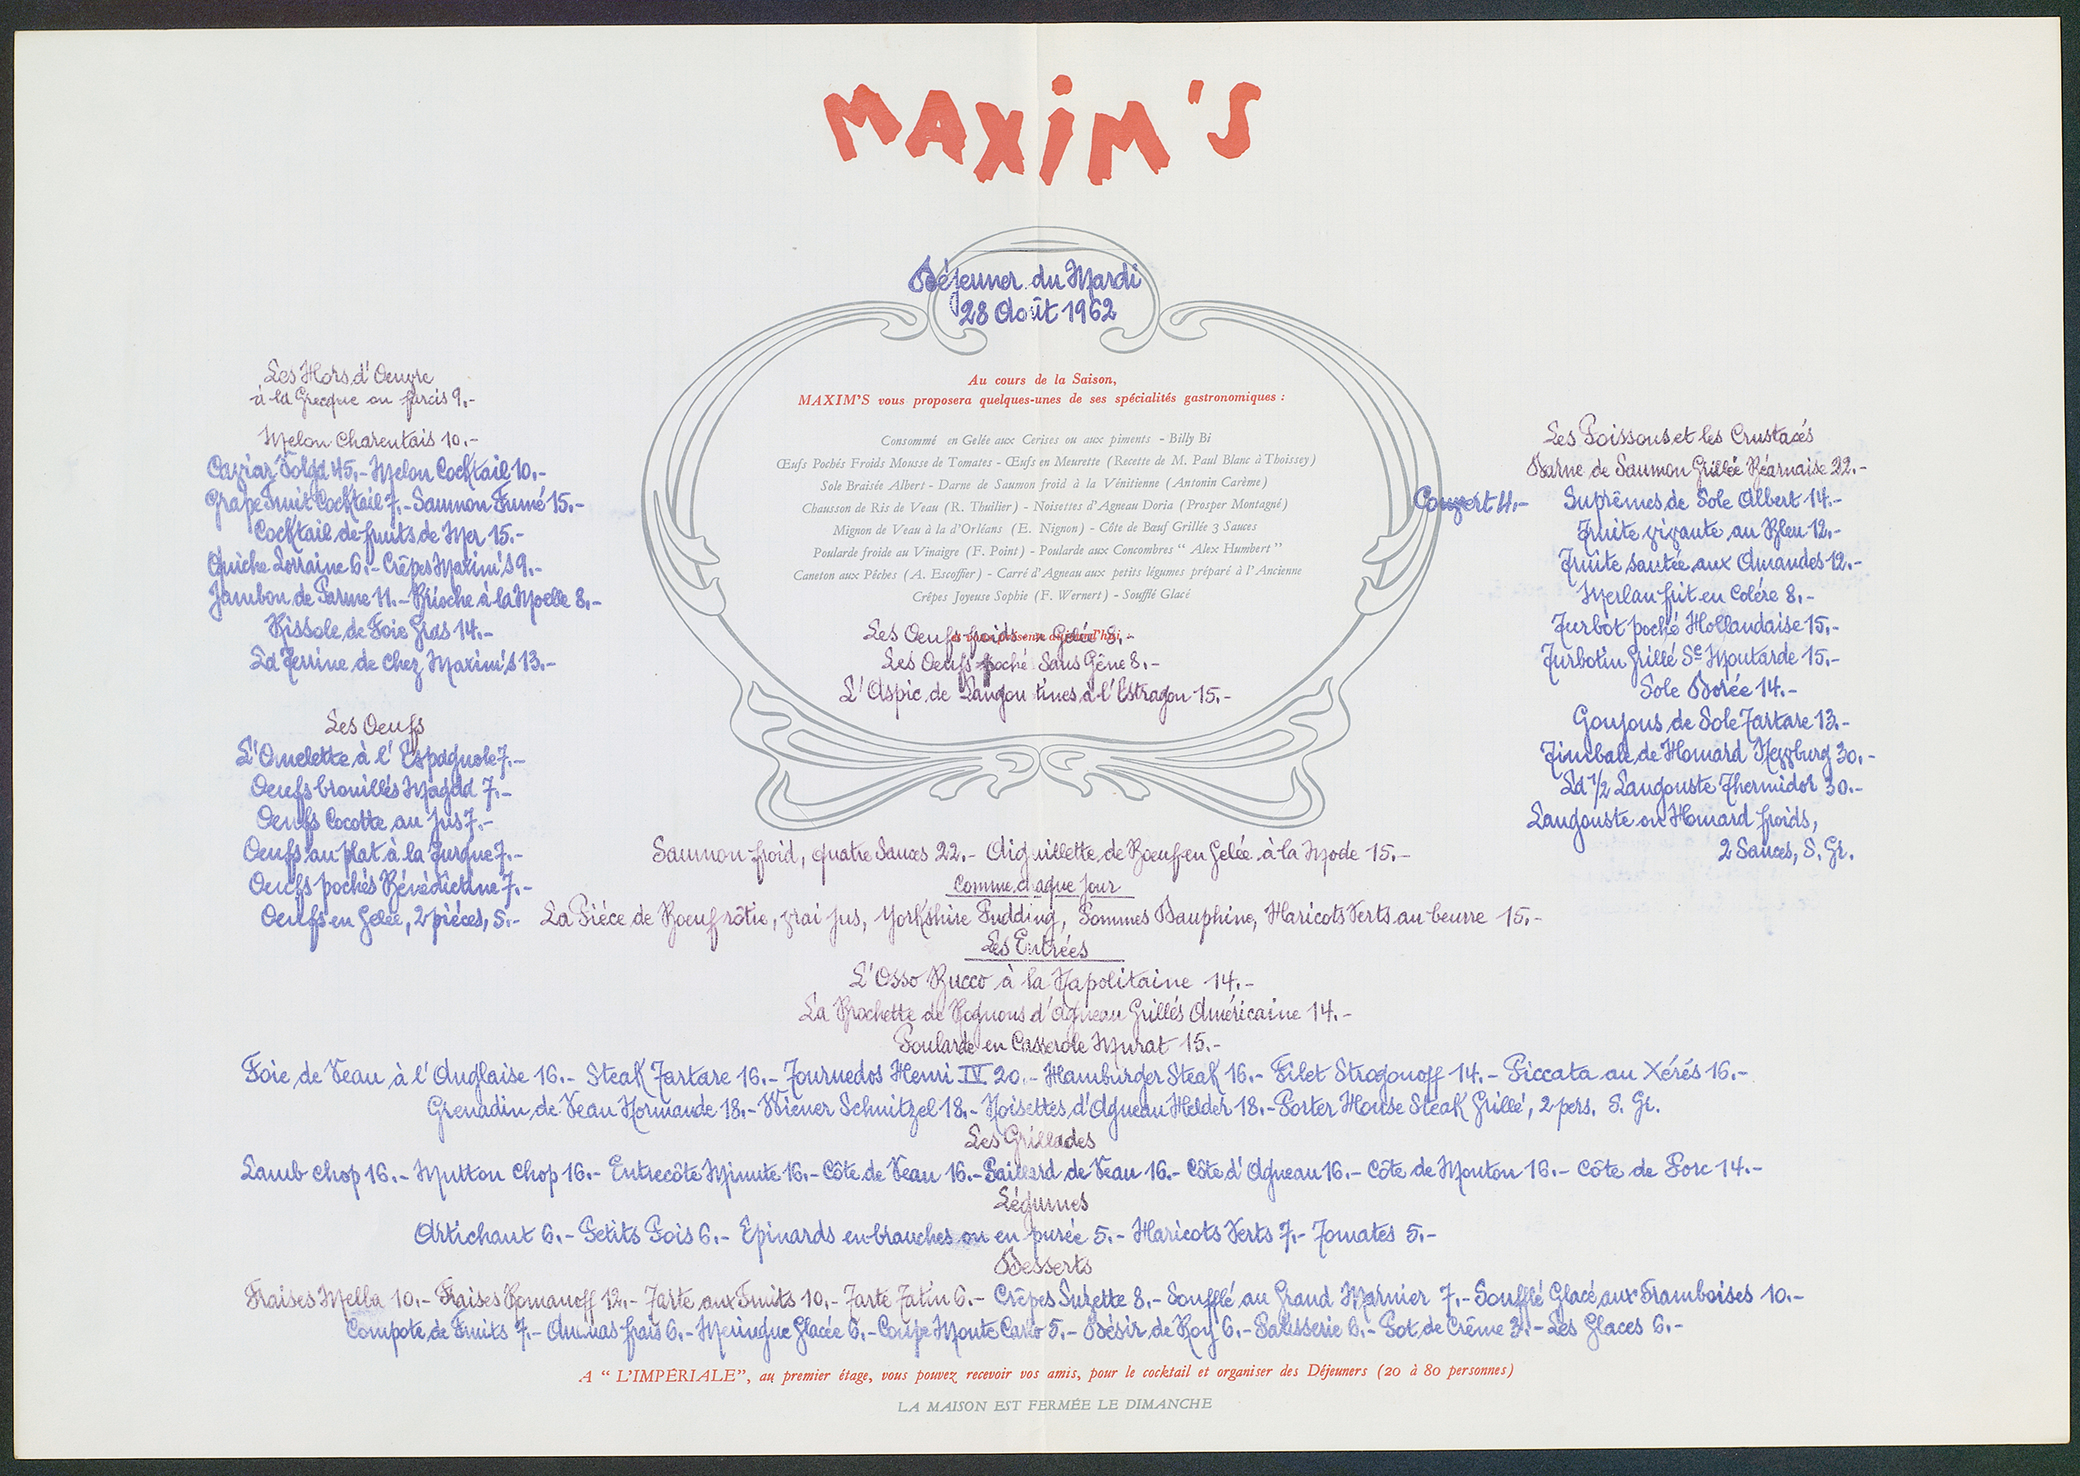 MAXIM'S
Déjeuner du Mardi
28 Août 1962
Au cours de la Saison,
MAXIM'S vous proposera quelques-unes de ses spécialités gastronomiques :
Consommé en Gelée aux Cerises ou aux piments - Billy Bi
Œufs Pochés Froids Mousse de Tomates - Œufs en Meurette (Recette de M. Paul Blanc à Thoissey)
Sole Braisée Albert - Darne de Saumon froid à la Vénitienne (Antonin Carème)
Chausson de Ris de Veau (R. Thuilier) - Noisettes d'Agneau Doria (Prosper Montagné)
Mignon de Veau à la d'Orléans (E. Nignon) - Côte de Bœuf Grillée 3 Sauces
Poularde froide au Vinaigre (F. Point) - Poularde aux Concombres “ Alex Humbert ”
Caneton aux Pêches (A. Escoffier) - Carré d'Agneau aux petits légumes préparé à l'Ancienne
Crêpes Joyeuse Sophie (F. Wernert) - Soufflé Glacé
Les Oeufs froids en Gelée 8.-
Les Oeufs poché Sans Gêne 8.-
L'Aspic de Langoustines à l'Estragon 15.-
Les Hors d'Oeuvre
à la Grecque ou farcis 9.-
Melon Charentais 10.-
Caviar Volga 45.- Melon Cocktail 10.-
Grape Fruit Cocktail 7.- Saumon Fumé 15.-
Cocktail de fruits de Mer 15.-
Quiche Lorraine 6.- Crêpes Maxim's 9.-
Jambon de Parme 11.- Brioche à la Moelle 8.-
Rissole de Foie Gras 14.-
La Terrine de chez Maxim's 13.-
Les Oeufs
L'Omelette à l'Espagnole 7.-
Oeufs brouillés Magda 7.-
Oeufs Cocotte au jus 7.-
Oeufs au plat à la Turque 7.-
Oeufs pochés Bénédictine 7.-
Oeufs en Gelée, 2 pièces, 5.-
Couvert 4.-
Les Poissons et les Crustacés
Darne de Saumon Grillée Béarnaise 22.-
Suprêmes de Sole Albert 14.-
Truite vivante au Bleu 12.-
Truite sautée aux Amandes 12.-
Merlan frit en Colére 8.-
Turbot poché Hollandaise 15.-
Turbotin Grillé Sᵉ Moutarde 15.-
Sole Dorée 14.-
Goujons de Sole Tartare 13.-
Timbale de Homard Newburg 30.-
La 1/2 Langouste Thermidor 30.-
Langouste ou Homard froids,
2 Sauces, S. Gr.
Saumon froid, quatre Sauces 22.- Aiguillette de Boeuf en Gelée à la Mode 15.-
Comme chaque jour
La Piéce de Boeuf rôtie, vrai jus, Yorkshire Pudding, Pommes Dauphine, Haricots Verts au beurre 15.-
Les Entrées
L'Osso Bucco à la Napolitaine 14.-
La Brochette de Rognons d'Agneau Grillés Américaine 14.-
Poularde en Casserole Murat 15.-
Foie de Veau à l'Anglaise 16.- Steak Tartare 16.- Tournedos Henri IV 20.- Hamburger Steak 16.- Filet Strogonoff 14.- Piccata au Xérés 16.-
Grenadin de Veau Normande 18.- Wiener Schnitzel 18.- Noisettes d'Agneau Helder 18.- Porter House Steak Grillé, 2 pers. S. Gr.
Les Grillades
Lamb chop 16.- Mutton Chop 16.- Entrecôte Minute 16.- Côte de Veau 16.- Paillard de Veau 16.- Côte d'Agneau 16.- Côte de Mouton 16.- Côte de Porc 14.-
Légumes
Artichaut 6.- Petits Pois 6.- Epinards en branches ou en purée 5.- Haricots Verts 7.- Tomates 5.-
Desserts
Fraises Melba 10.- Fraises Romanoff 12.- Tarte aux Fruits 10.- Tarte Tatin 6.- Crêpes Suzette 8.- Soufflé au Grand Marnier 7.- Soufflé Glacé aux Framboises 10.-
Compote de Fruits 7.- Ananas frais 6.- Meringue Glacée 6.- Coupe Monte Carlo 5.- Désir de Roy 6.- Patisserie 6.- Pot de Crême 3.- Les Glaces 6.-
A “ L'IMPÉRIALE”, au premier étage, vous pouvez recevoir vos amis, pour le cocktail et organiser des Déjeuners (20 à 80 personnes)
LA MAISON EST FERMÉE LE DIMANCHE